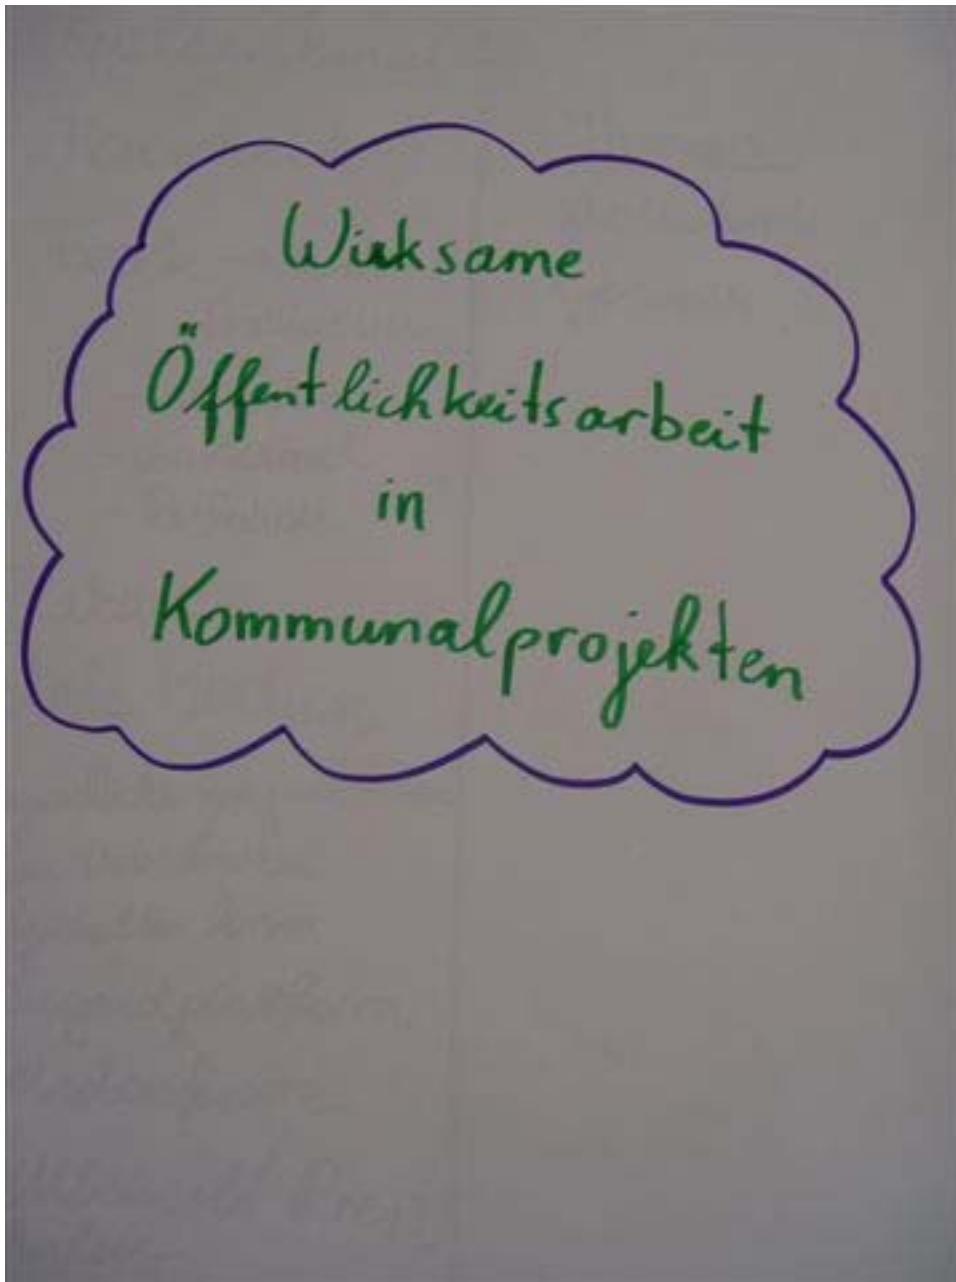 Wirksame
Öffentlichkeitsarbeit
in
Kommunalprojekten